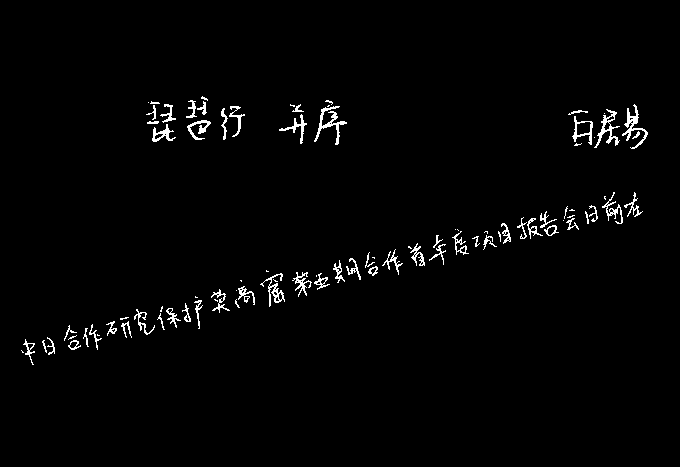 琵琶行 并序 白居易
中日合作研究保护莫高窟第五期合作首年度项目报告会日前在